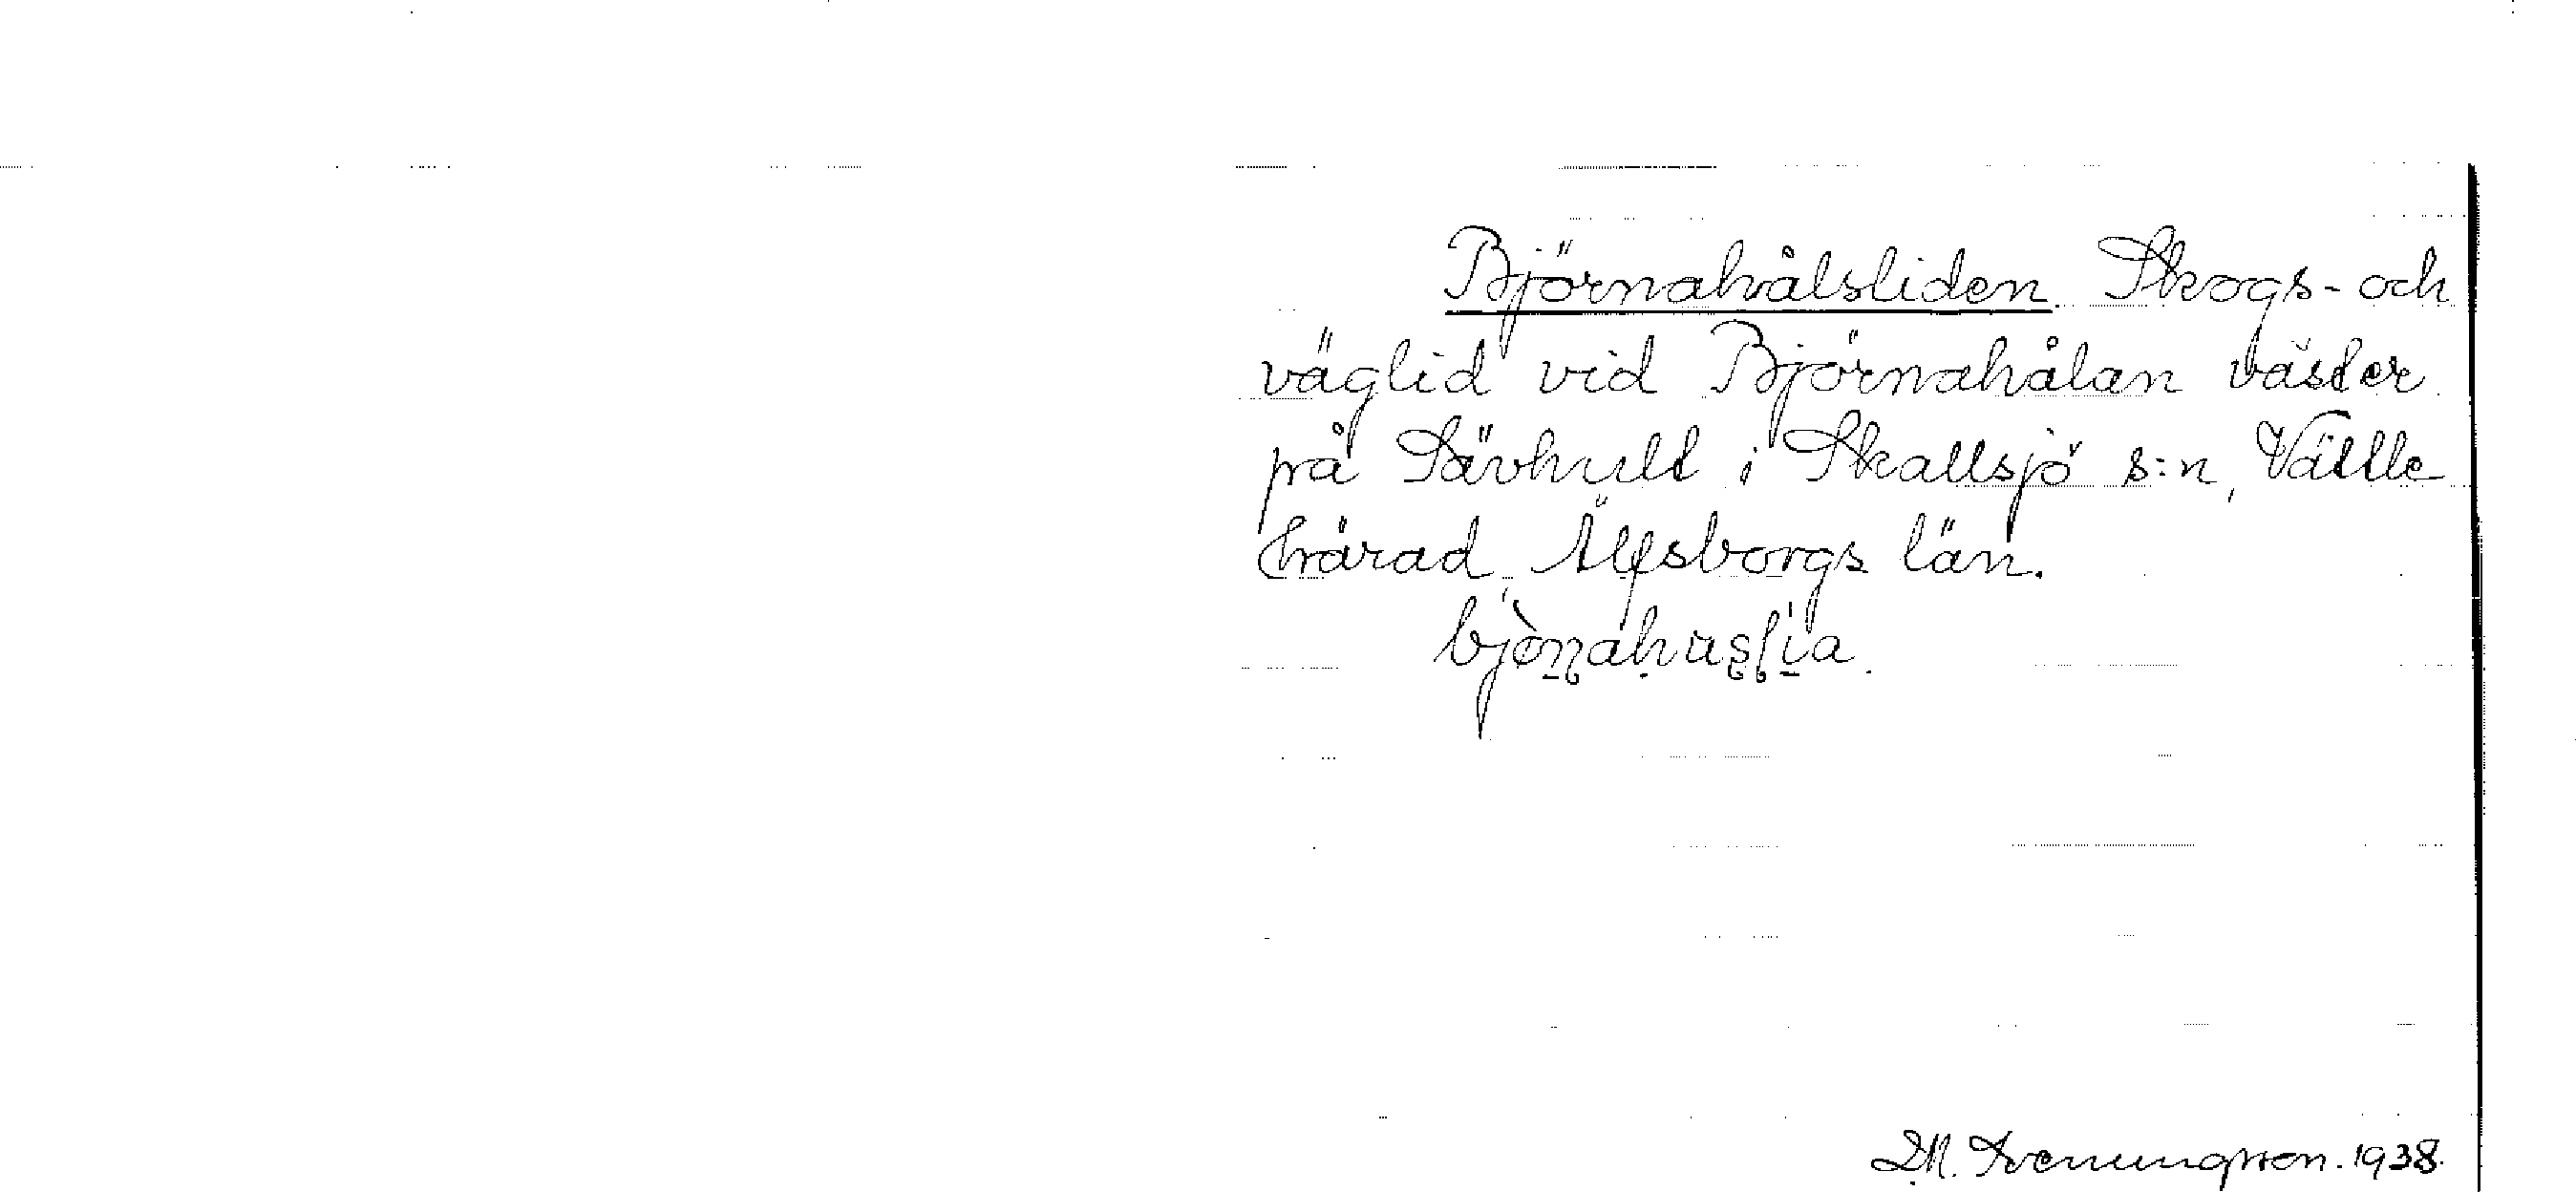 Björnahålsliden. Skogs- och
väglid vid Björnahålan väster
på Sävhult i Skallsjö s:n, Vättle
härad, Älfsborgs län.
D.M. Svenungsson. 1938.